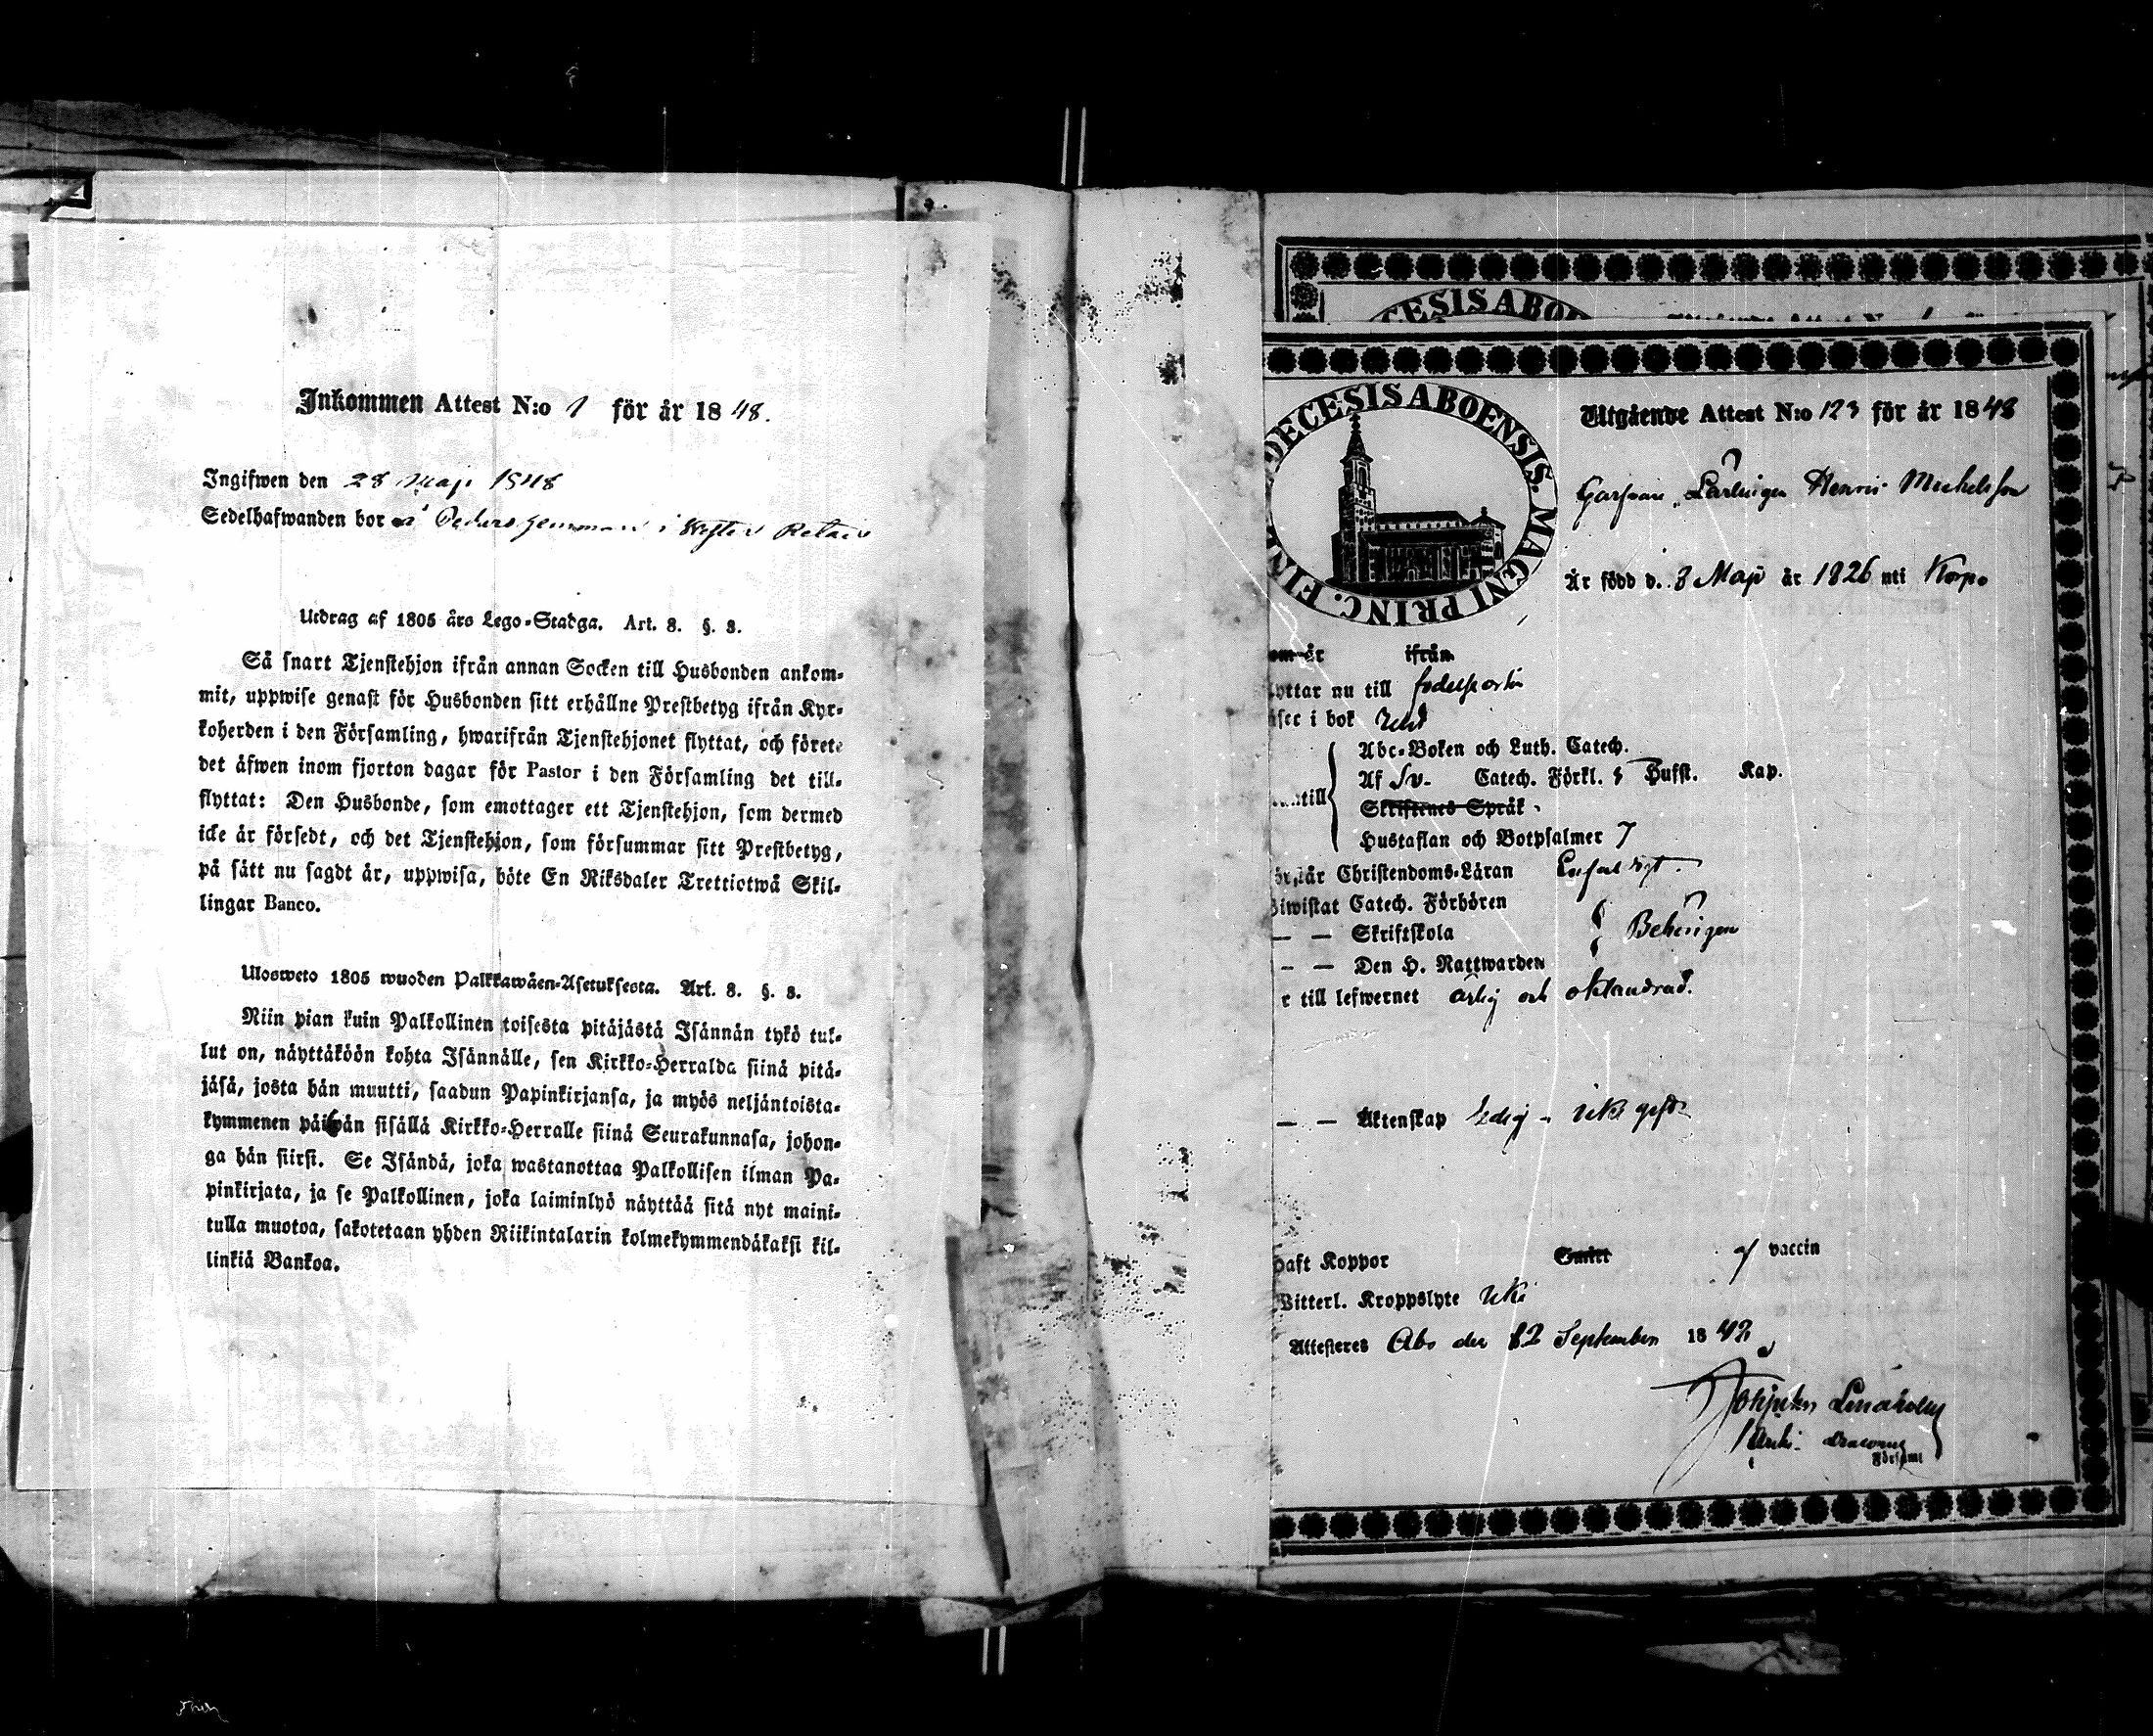 Inkommen Attest N:o 1 för år 1848.
Ingifwen den 28 Maji 1848
Sedelhafwanden bor
Utdrag af 1805 års Lego-Stadga. Art. 8. §. 3.
Så snart Tjenstehjon ifrån annan Socken till Husbonden ankom-
mit, uppwise genast för Husbonden sitt erhållne Prestbetyg ifrån Kyr-
koherden i den Församling, hwarifrån Tjenstehjonet flyttat, och förete
det äfwen inom fjorton dagar för Pastor i den Församling det till-
flyttat: Den Husbonde, som emottager ett Tjenstehjon, som dermed
icke är försedt, och det Tjenstehjon, som försummar sitt Prestbetyg,
på sätt nu sagdt är, uppwisa, böte En Riksdaler Trettiotwå Skil-
lingar Banco.
Ulosweto 1805 wuoden Palkkawäen-Asetuksesta. Art. 8. §. 3.
Niin pian kuin Palkollinen toisesta pitäjästä Isännän tykö tul-
lut on, näyttäköön kohta Isännälle, sen Kirkko-Herralda siinä pitä-
jäsä, josta hän muutti, saadun Papinkirjansa, ja myös neljäntoista-
kymmenen päiwän sisällä Kirkko-Herralle siinä Seurakunnasa, johon-
ga hän siirsi. Se Isändä, joka wastanottaa Palkollisen ilman Pa-
pinkirjata, ja se Palkollinen, joka laiminlyö näyttää sitä nyt maini-
tulla muotoa, sakotetaan yhden Riikintalarin kolmekymmendäkaksi kil-
linkiä Bankoa.
CESIS ABOE
DECESIS ABOENSIS. MAGNI PRINC. FINL
Utgående Attest N:o 123 för år 1848
Lärlingen Henric Michelsson
Är född d. 3 Maji år 1826 uti Korpo
om år ifrån
lyttar nu till
äser i bok
Abc-Boken och Luth. Catech.
Af Sv. Catech. Förkl. Hufst. Kap.
antill
Skriftenes Språk
Hustaflan och Botpsalmer 7
örstår Christendoms-Läran
Biwistat Catech. Förhören
— — Skriftskola Behörigen
— — Den H. Nattwarden
r till lefwernet ärlig och oklandrad.
— — Äktenskap Ledig
haft Koppor Smitt af vaccin
Witterl. Kroppslyte
Attesteres Åbo den 12 September 184
Församl